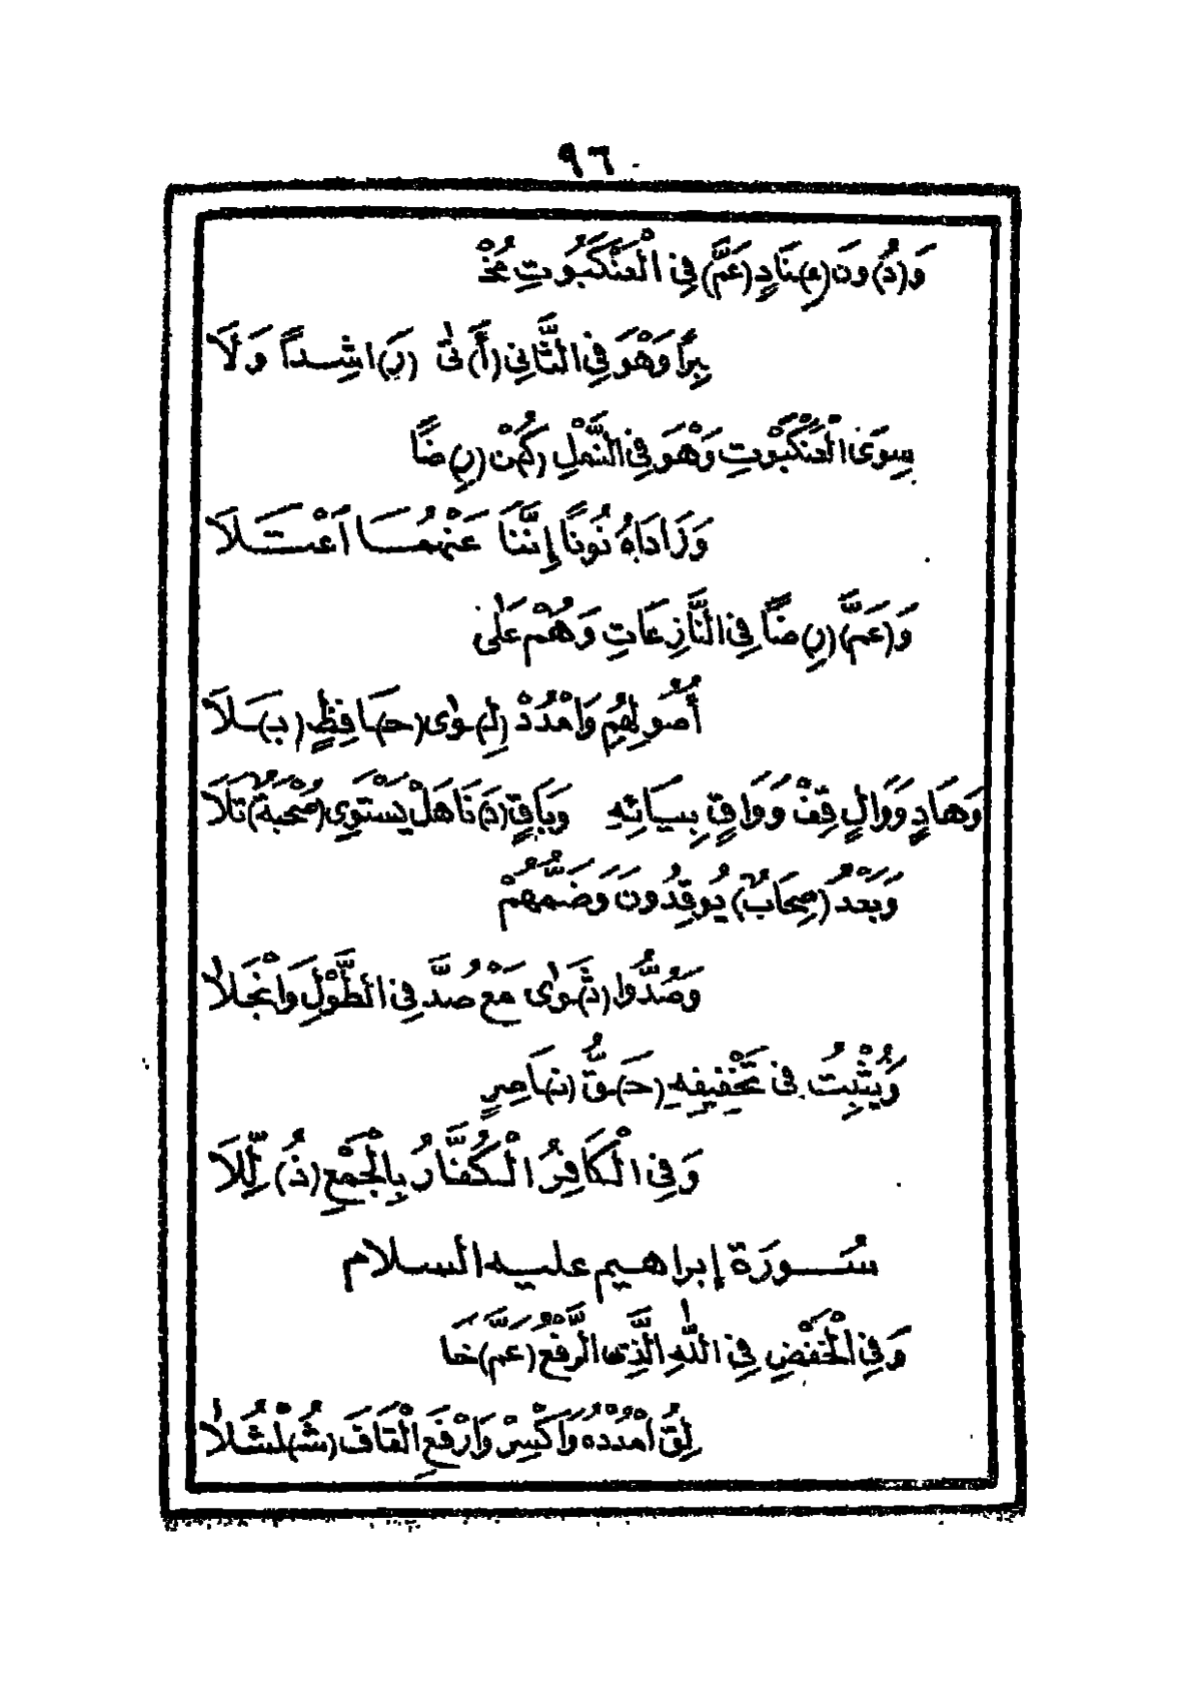 ٩٦
وَ(دُ)ونَ (عِ)نَادٍ (عَمَّ) فِى الْعَنْكَبُوتِ مُخْ
بِرًا وَهْوَ فِى الثَّانِى (أَ)تَىٰ (رَ)اشِداً وَلَا
سِوَى الْعَنْكَبُوتِ وَهْوَ فِى النَّمْلِ (كُ)نْ (رِ)ضًا
وَزَادَاهُ نُونًا إِنَّنَا عَنْهُمَا اعْتَلَا
وَ(عَمَّ) (رِ)ضًا فِى النَّازِعَاتِ وَهُمْ عَلَى
أُصُولِهِمْ وَامْدُدْ (لِ)ـوٰى (حَـ)ـافِظٍ (بَـ)ـلَا
وَهَادٍ وَوَالٍ قِفْ وَوَاقٍ بِيَائِهِ وَبَاقٍ (دَ)نَا هَلْ يَسْتَوِى (صُحْبَةٌ) تَلَا
وَبَعْدُ (صِحَابٌ) يُوقِدُونَ وَضَمُّهُمْ
وَصُدُّوا (ثَـ)ـوٰى مَعْ صُدَّ فِى الطَّوْلِ وَانْجَلَا
وَيُثْبِتُ فِى تَخْفِيفِهِ (حَـ)ـقُّ (نَـ)ـاصِرٍ
وَفِى الْكَافِرُ الْكُفَّارُ بِالْجَمْعِ (ذُ) لِّلَا
سُورَة إبراهيم عليه السلام
وَفِى الْخَفْضِ فِى اللّٰهِ الَّذِى الرَّفْعُ (عَمَّ) خَا
لِقُ امْدُدْهُ وَاكْسِرْ وَارْفَعِ الْقَافَ (شُـ)ـلْشُلَا